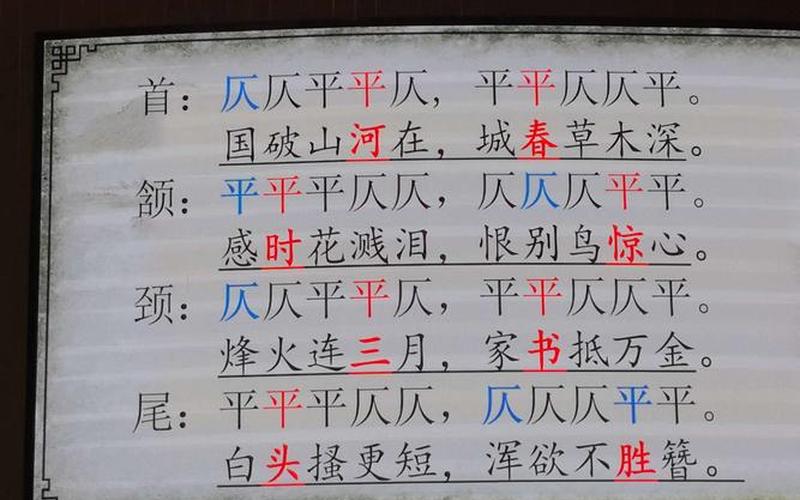 首：仄仄平平仄，平平仄仄平。
国破山河在，城春草木深。
颔：平平平仄仄，仄仄仄平平。
感时花溅泪，恨别鸟惊心。
颈：仄仄平平仄，平平仄仄平。
烽火连三月，家书抵万金。
尾：平平平仄仄，仄仄仄平平。
白头搔更短，浑欲不胜簪。